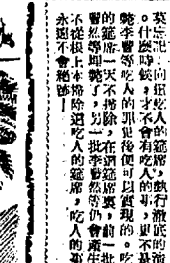 莫忘記！向狂吃人的筵席，執行澈底的清
。什麼時候，才不會有吃人的事，更不是
斃李等吃人的罪犯後便可以實現的。吃
的筵席一天不掃除，在酒筵裏，前一批
曹然等即斃了，另一批李曹然等仍會產生
不從根上本掃除這吃人的筵席，吃人的事
永遠不會絶跡！